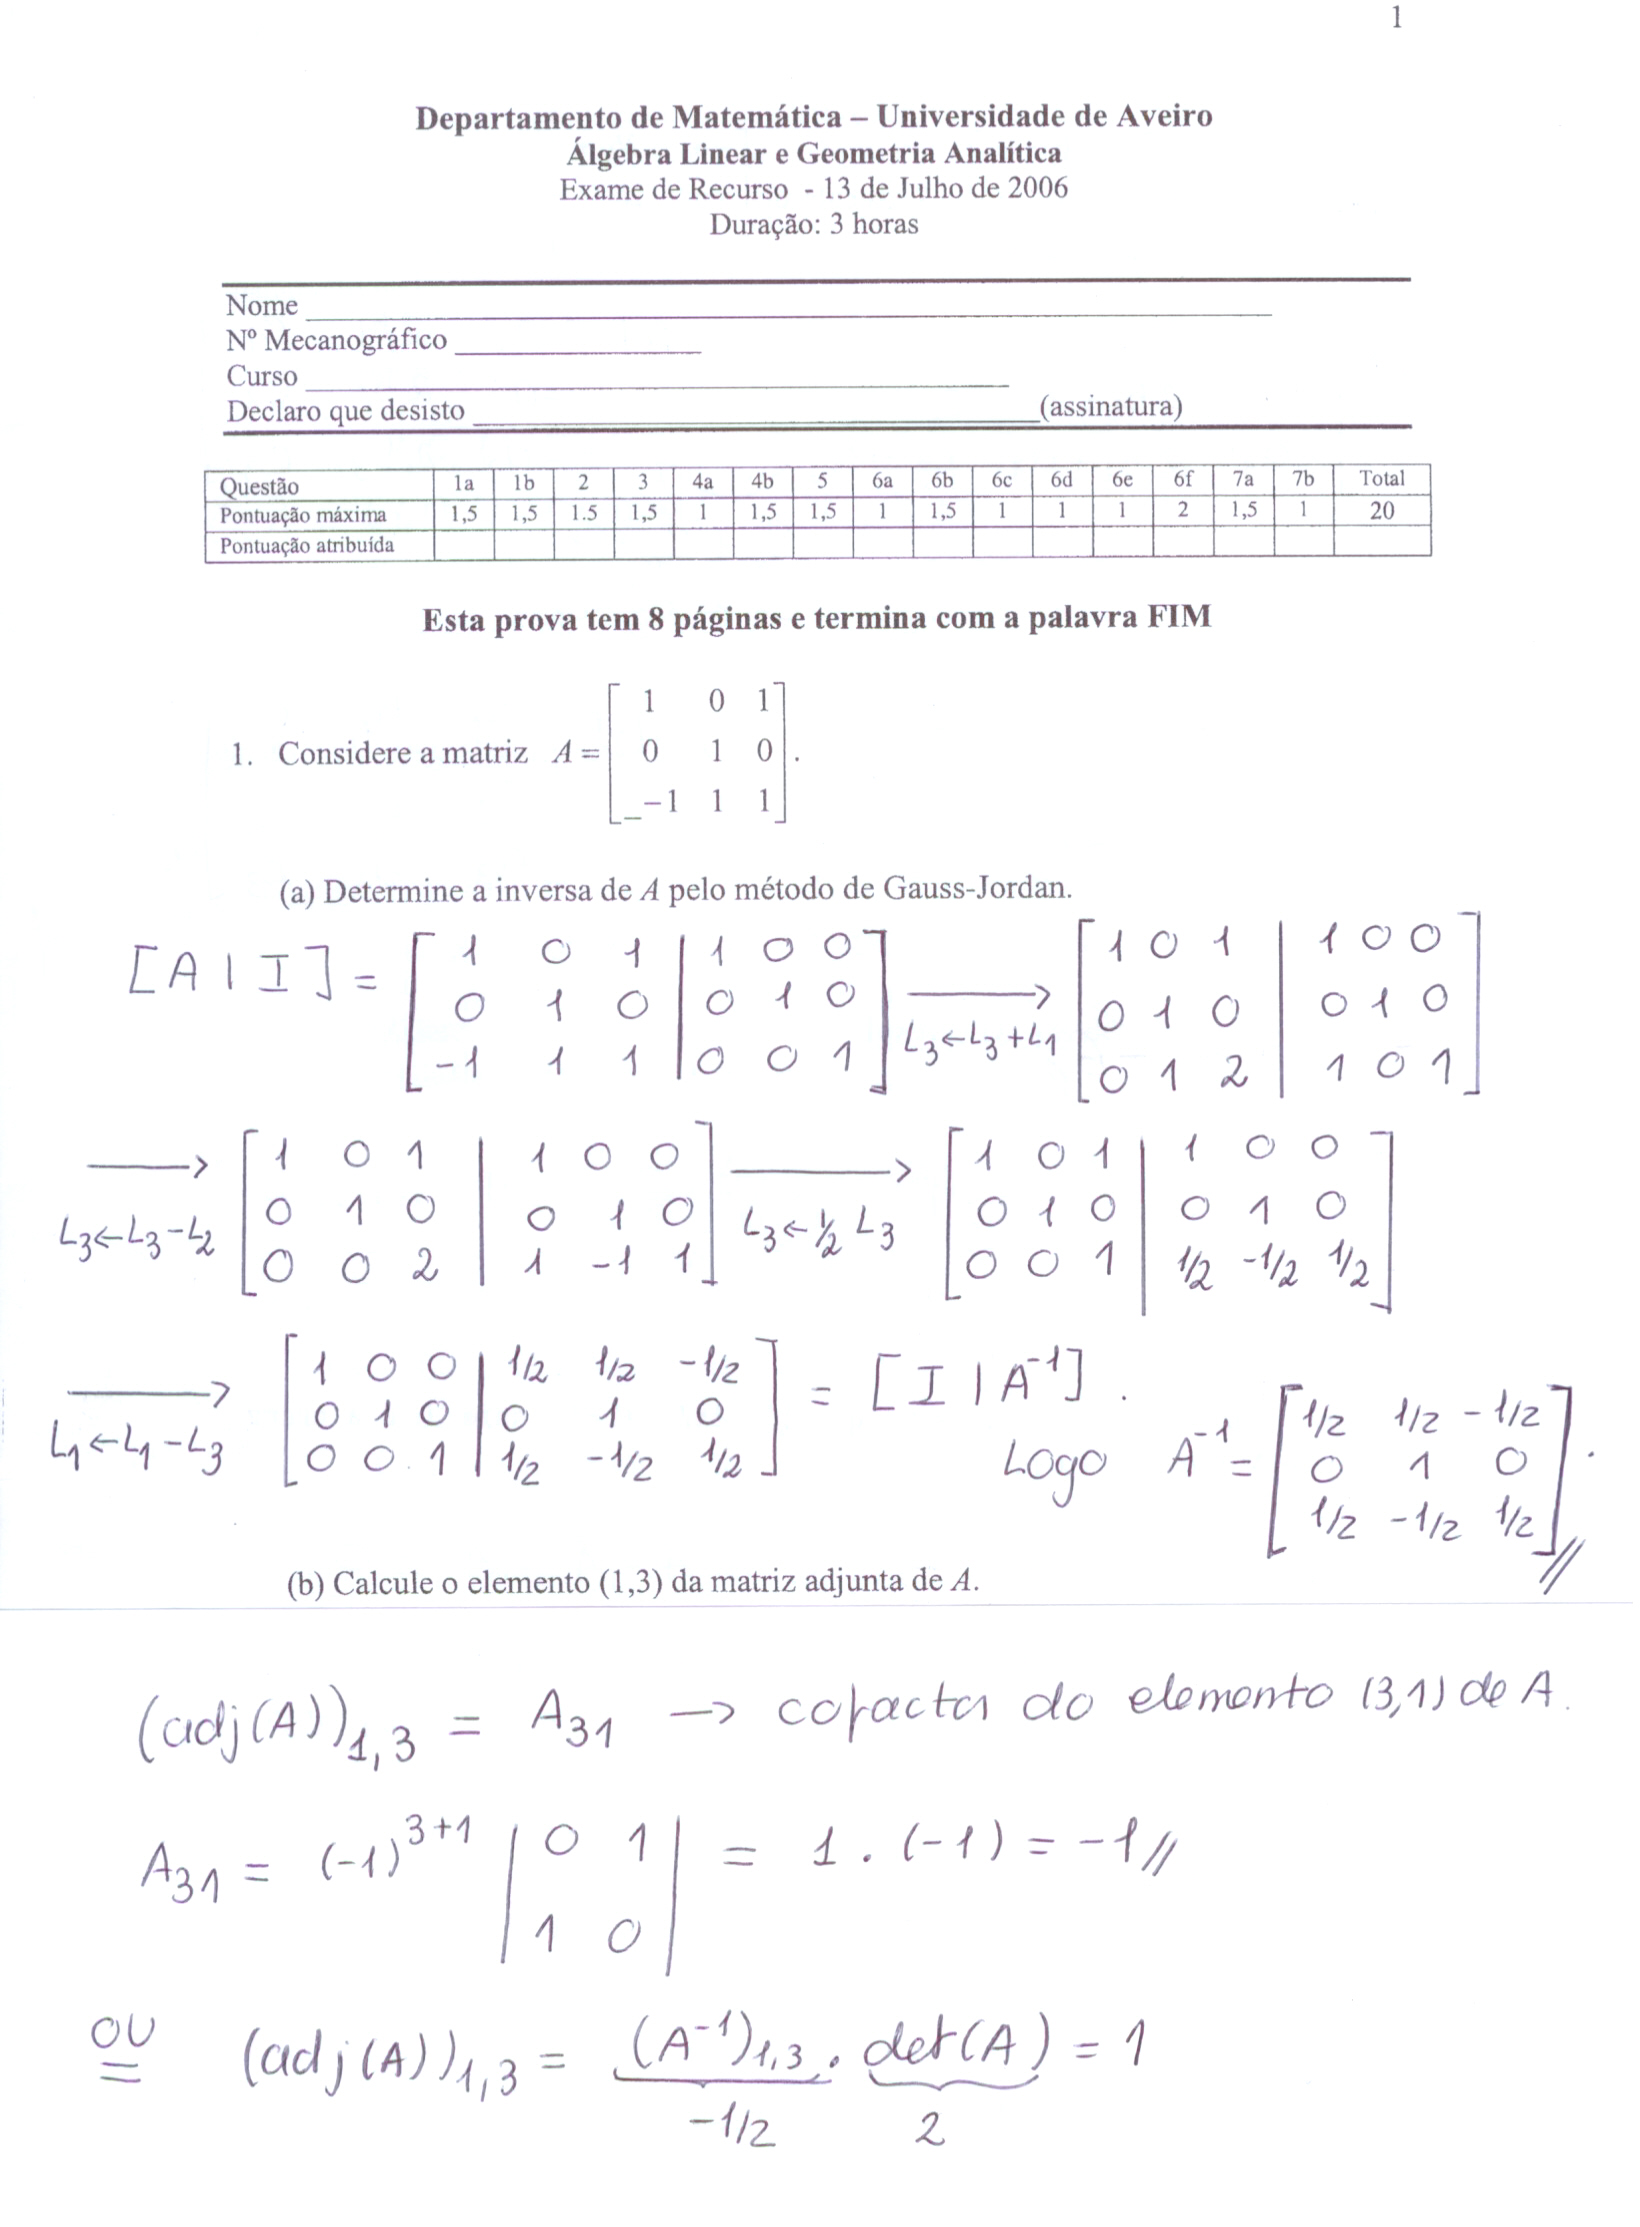 1
Departamento de Matemática – Universidade de Aveiro
Álgebra Linear e Geometria Analítica
Exame de Recurso - 13 de Julho de 2006
Duração: 3 horas
Nome
Nº Mecanográfico
Curso
Declaro que desisto (assinatura)
Questão 1a 1b 2 3 4a 4b 5 6a 6b 6c 6d 6e 6f 7a 7b Total
Pontuação máxima 1,5 1,5 1.5 1,5 1 1,5 1,5 1 1,5 1 1 1 2 1,5 1 20
Pontuação atribuída
Esta prova tem 8 páginas e termina com a palavra FIM
1 0 1
1. Considere a matriz A = 0 1 0 .
−1 1 1
(a) Determine a inversa de A pelo método de Gauss-Jordan.
[A | I] = [ 1 0 1 | 1 0 0 ] [ 1 0 1 | 1 0 0 ]
0 1 0 | 0 1 0 → 0 1 0 | 0 1 0
-1 1 1 | 0 0 1 L3←L3+L1 0 1 2 | 1 0 1
→ [ 1 0 1 | 1 0 0 ] → [ 1 0 1 | 1 0 0 ]
L3←L3-L2 0 1 0 | 0 1 0 L3←1/2 L3 0 1 0 | 0 1 0
0 0 2 | 1 -1 1 0 0 1 | 1/2 -1/2 1/2
→ [ 1 0 0 | 1/2 1/2 -1/2 ] = [I | A⁻¹] .
L1←L1-L3 0 1 0 | 0 1 0
0 0 1 | 1/2 -1/2 1/2
Logo A⁻¹ = [ 1/2 1/2 -1/2 ] .
0 1 0
1/2 -1/2 1/2 //
(b) Calcule o elemento (1,3) da matriz adjunta de A.
(adj(A))1,3 = A31 → cofactor do elemento (3,1) de A.
A31 = (-1)³⁺¹ | 0 1 | = 1 . (-1) = -1 //
1 0
OU (adj(A))1,3 = (A⁻¹)1,3 . det(A) = 1
-1/2 2